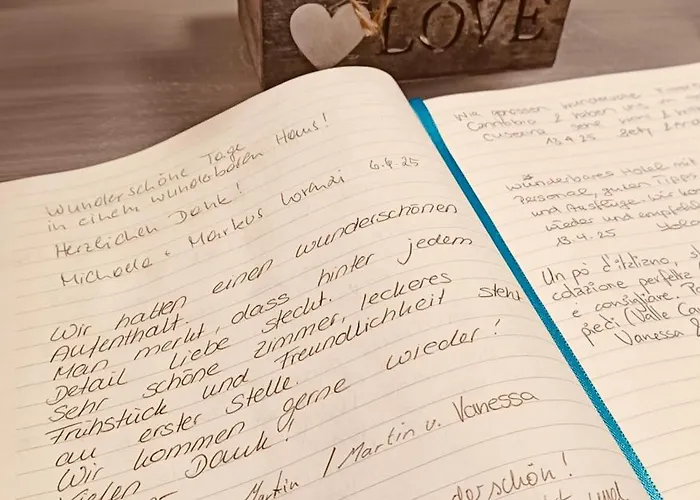 LOVE
Wunderschöne Tage
in einem wunderbaren Haus!
Herzlichen Dank!
Michaela + Markus 6.4.25
Wir hatten einen wunderschönen
Aufenthalt.
Man merkt, dass hinter jedem
Detail Liebe steckt.
Sehr schöne Zimmer, leckeres
Frühstück und Freundlichkeit steht
an erster Stelle.
Wir kommen gerne wieder!
Vielen Dank!
Martin / Martin u. Vanessa
derschön!
und
Wir genossen wundervolle
2 haben uns
sehr
13.4.25
Wunderbares Hotel mit
Personal, guten Tipps
und Ausflüge. Wir
wieder und
13.4.25
Un pò d'italiano,
colazione perfetta
e consigliare.
piedi (Valle
Vanessa &